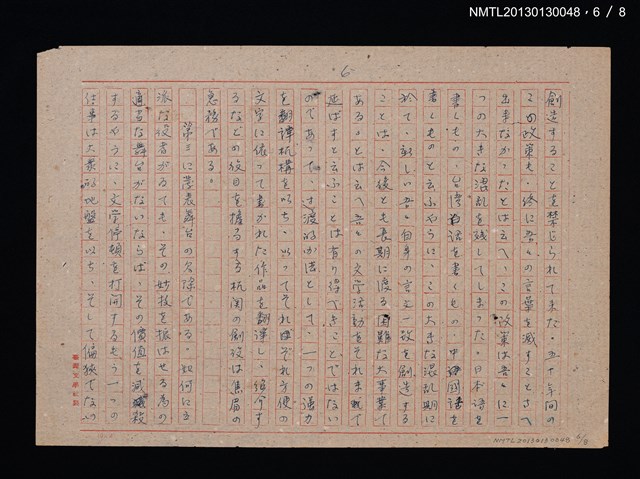 NMTL20130130048，6／8
6
創造することを禁じられて来た。五十年間の
この政策も、終に吾々の言葉を滅すことさへ
出来なかつたとは云へ、この政策は吾々に一
つの大きな混乱を残してしまつた。日本語を
書くもの、台湾白話を書くもの、中國語を
書くものと云ふやうに、この大きな混乱期に
於て、新しい吾々自身の言文一致を創造する
ことは、今後とも長期に渡る困難な大事業で
あることは云へ吾々の文学活動をそれまで
延ばすと云ふことは有り得べきことではない
のであつた、過渡的方法として、一つの強力
を翻譯機構を以ち、以つてそれぞれ方便の
文字に依つて書かれた作品を翻譯し、紹介す
るなどの役目を擔する機関の創設は焦眉の
急務である。
第三に発表舞台の喪失である。如何に立
派な役者がゐても、その妙技を振はせる為の
適當な舞台がないならば、その價値を減殺
するやうに、文学停頓を打開するもう一つの
仕事は大衆的地盤を以ち、そして偏狹でない
NMTL20130130048 6/8